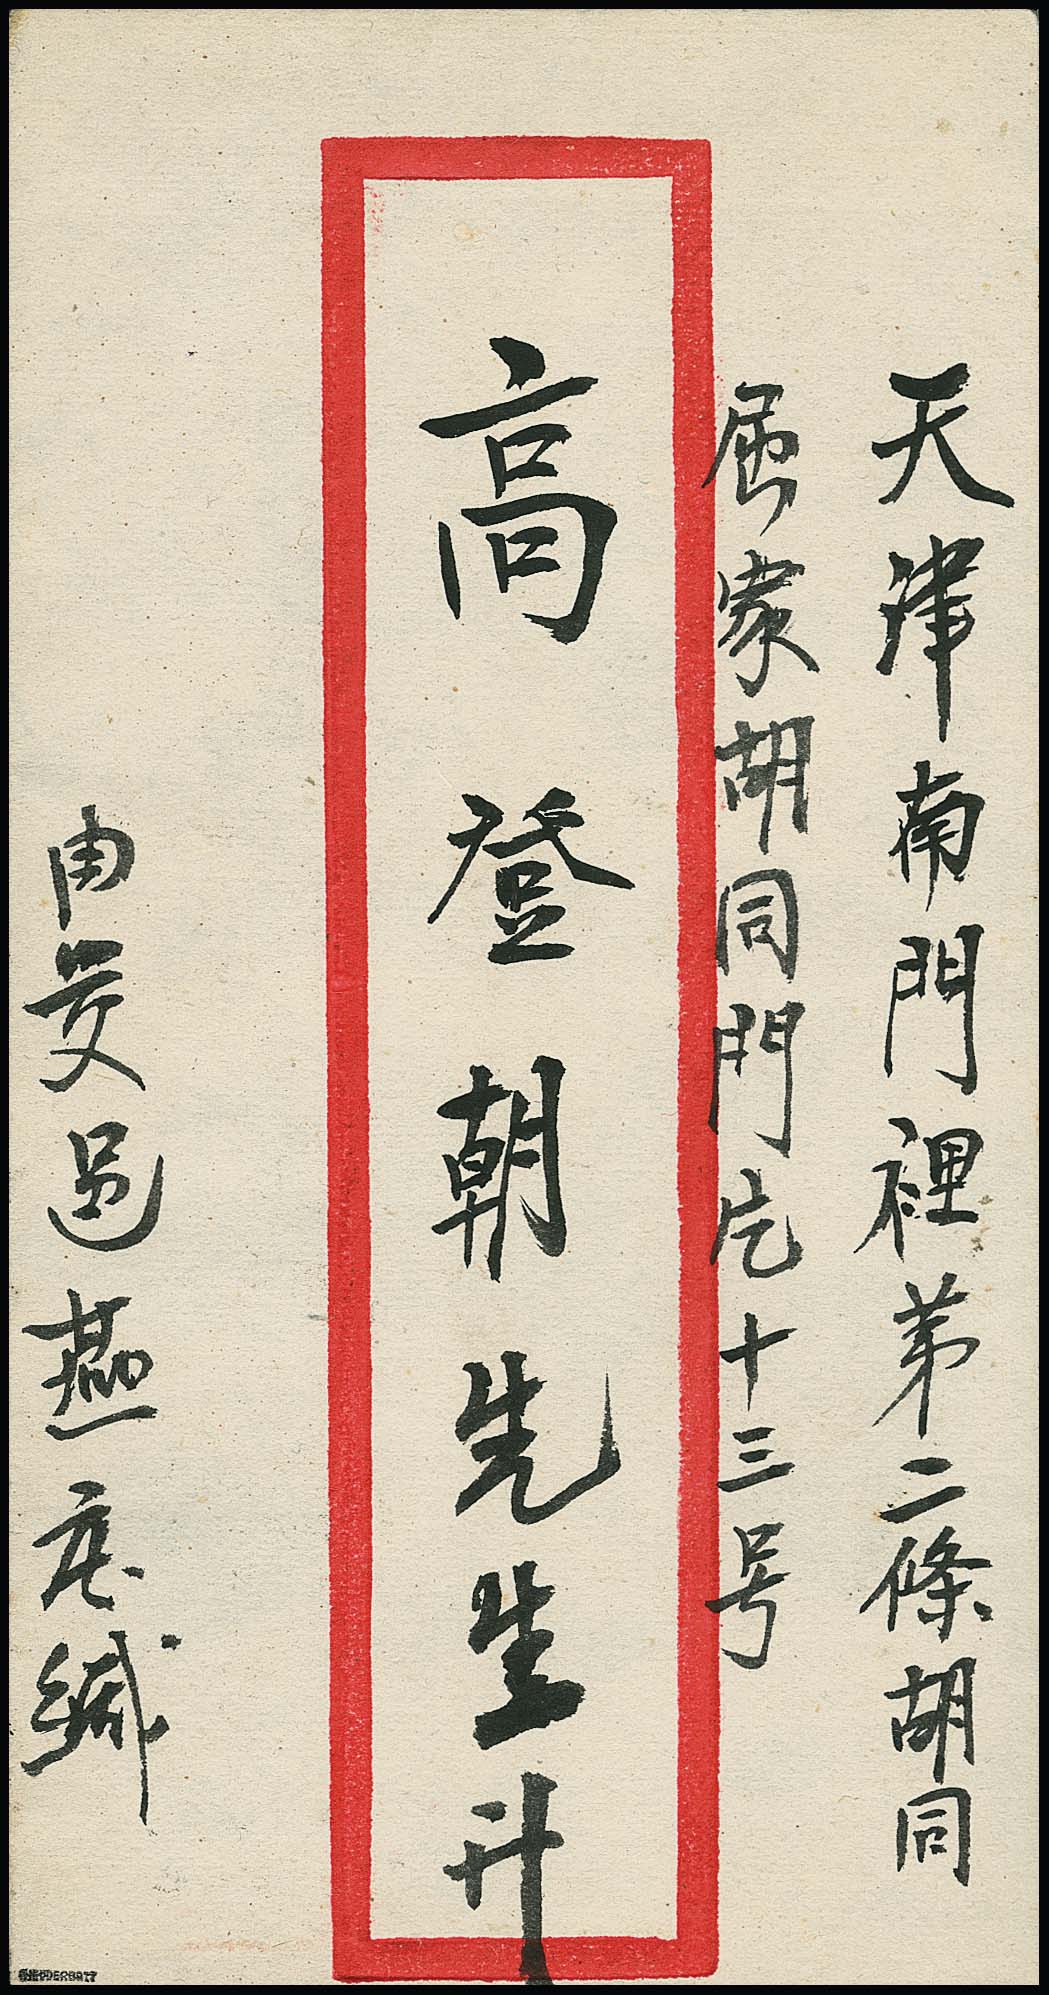 天津南門裡第二條胡同
屈家胡同門先十三号
高登朝先生升
由愛邑燕底緘